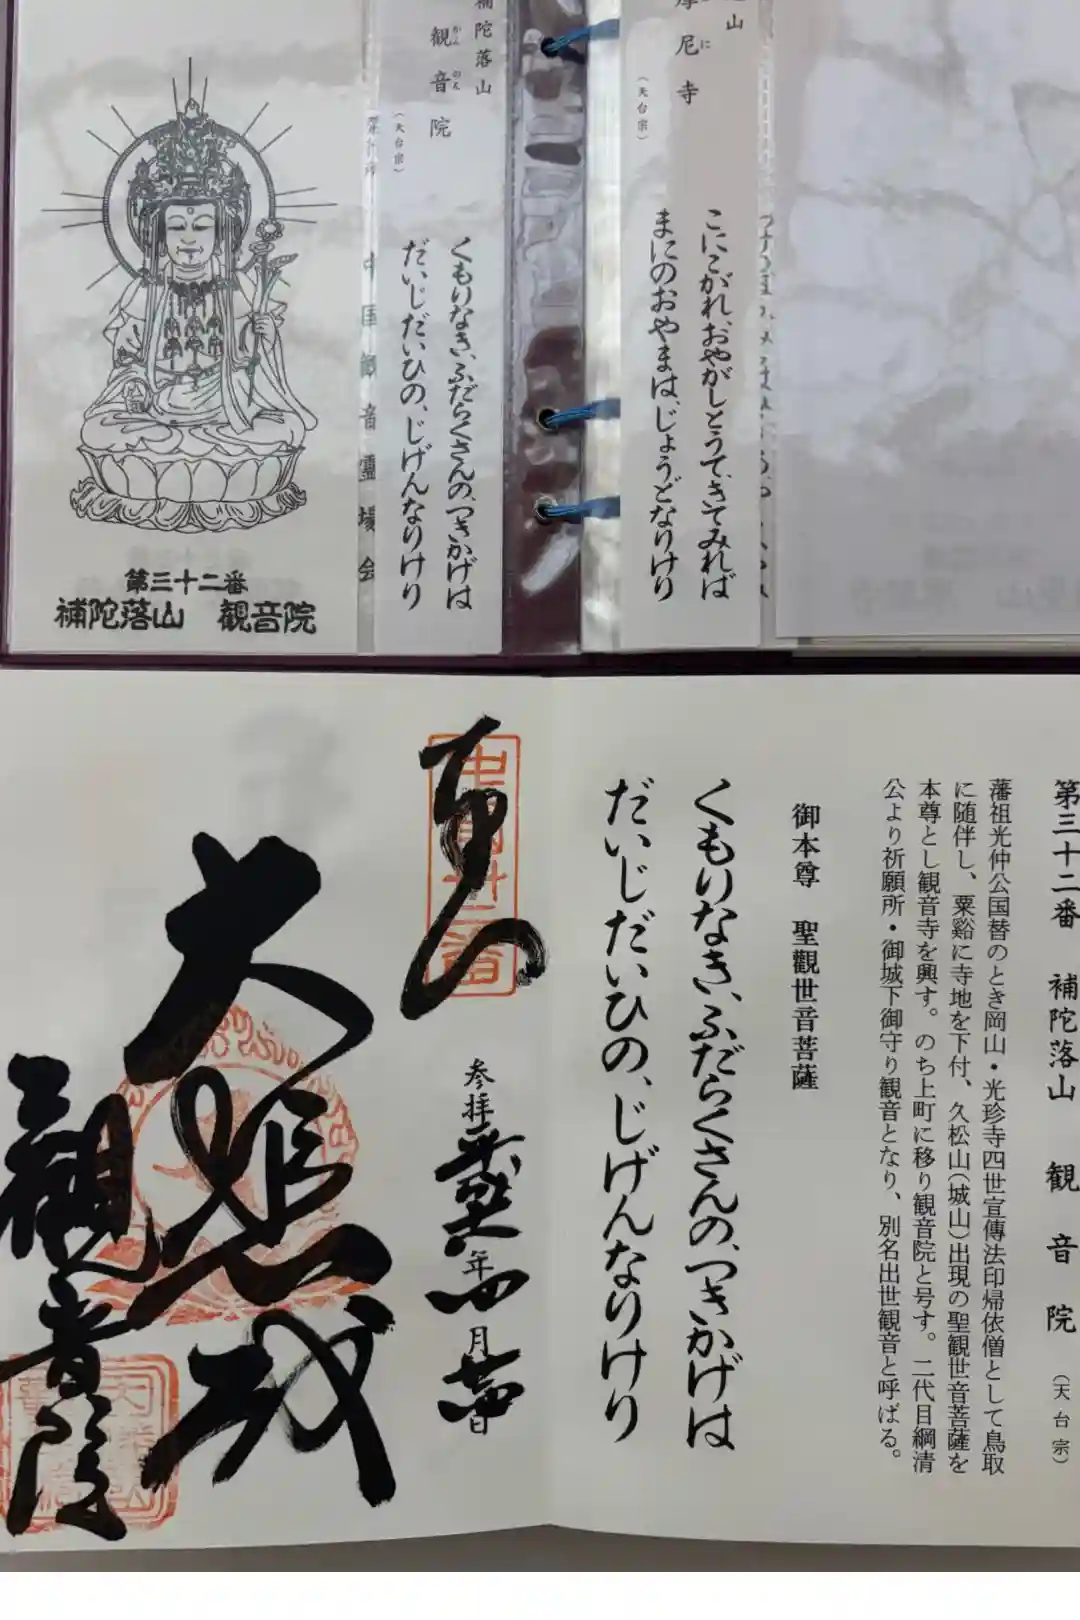 摩尼寺
(天台宗)
こにこがれ、おやがしとうて、きてみれば
まにのおやまは、じょうどなりけり
補陀落山
観音院
(天台宗)
くもりなき、ふだらくさんの、つきかげは
だいじだいひの、じげんなりけり
中国観音霊場会
第三十二番
補陀落山 観音院
第三十二番 補陀落山 観音院 (天台宗)
藩祖光仲公国替のとき岡山・光珍寺四世宣傳法印帰依僧として鳥取
に随伴し、粟谿に寺地を下付、久松山(城山)出現の聖観世音菩薩を
本尊とし観音寺を興す。のち上町に移り観音院と号す。二代目綱清
公より祈願所・御城下御守り観音となり、別名出世観音と呼ばる。
御本尊 聖觀世音菩薩
くもりなき、ふだらくさんの、つきかげは
だいじだいひの、じげんなりけり
参拝
年
月
日
大悲
観音院